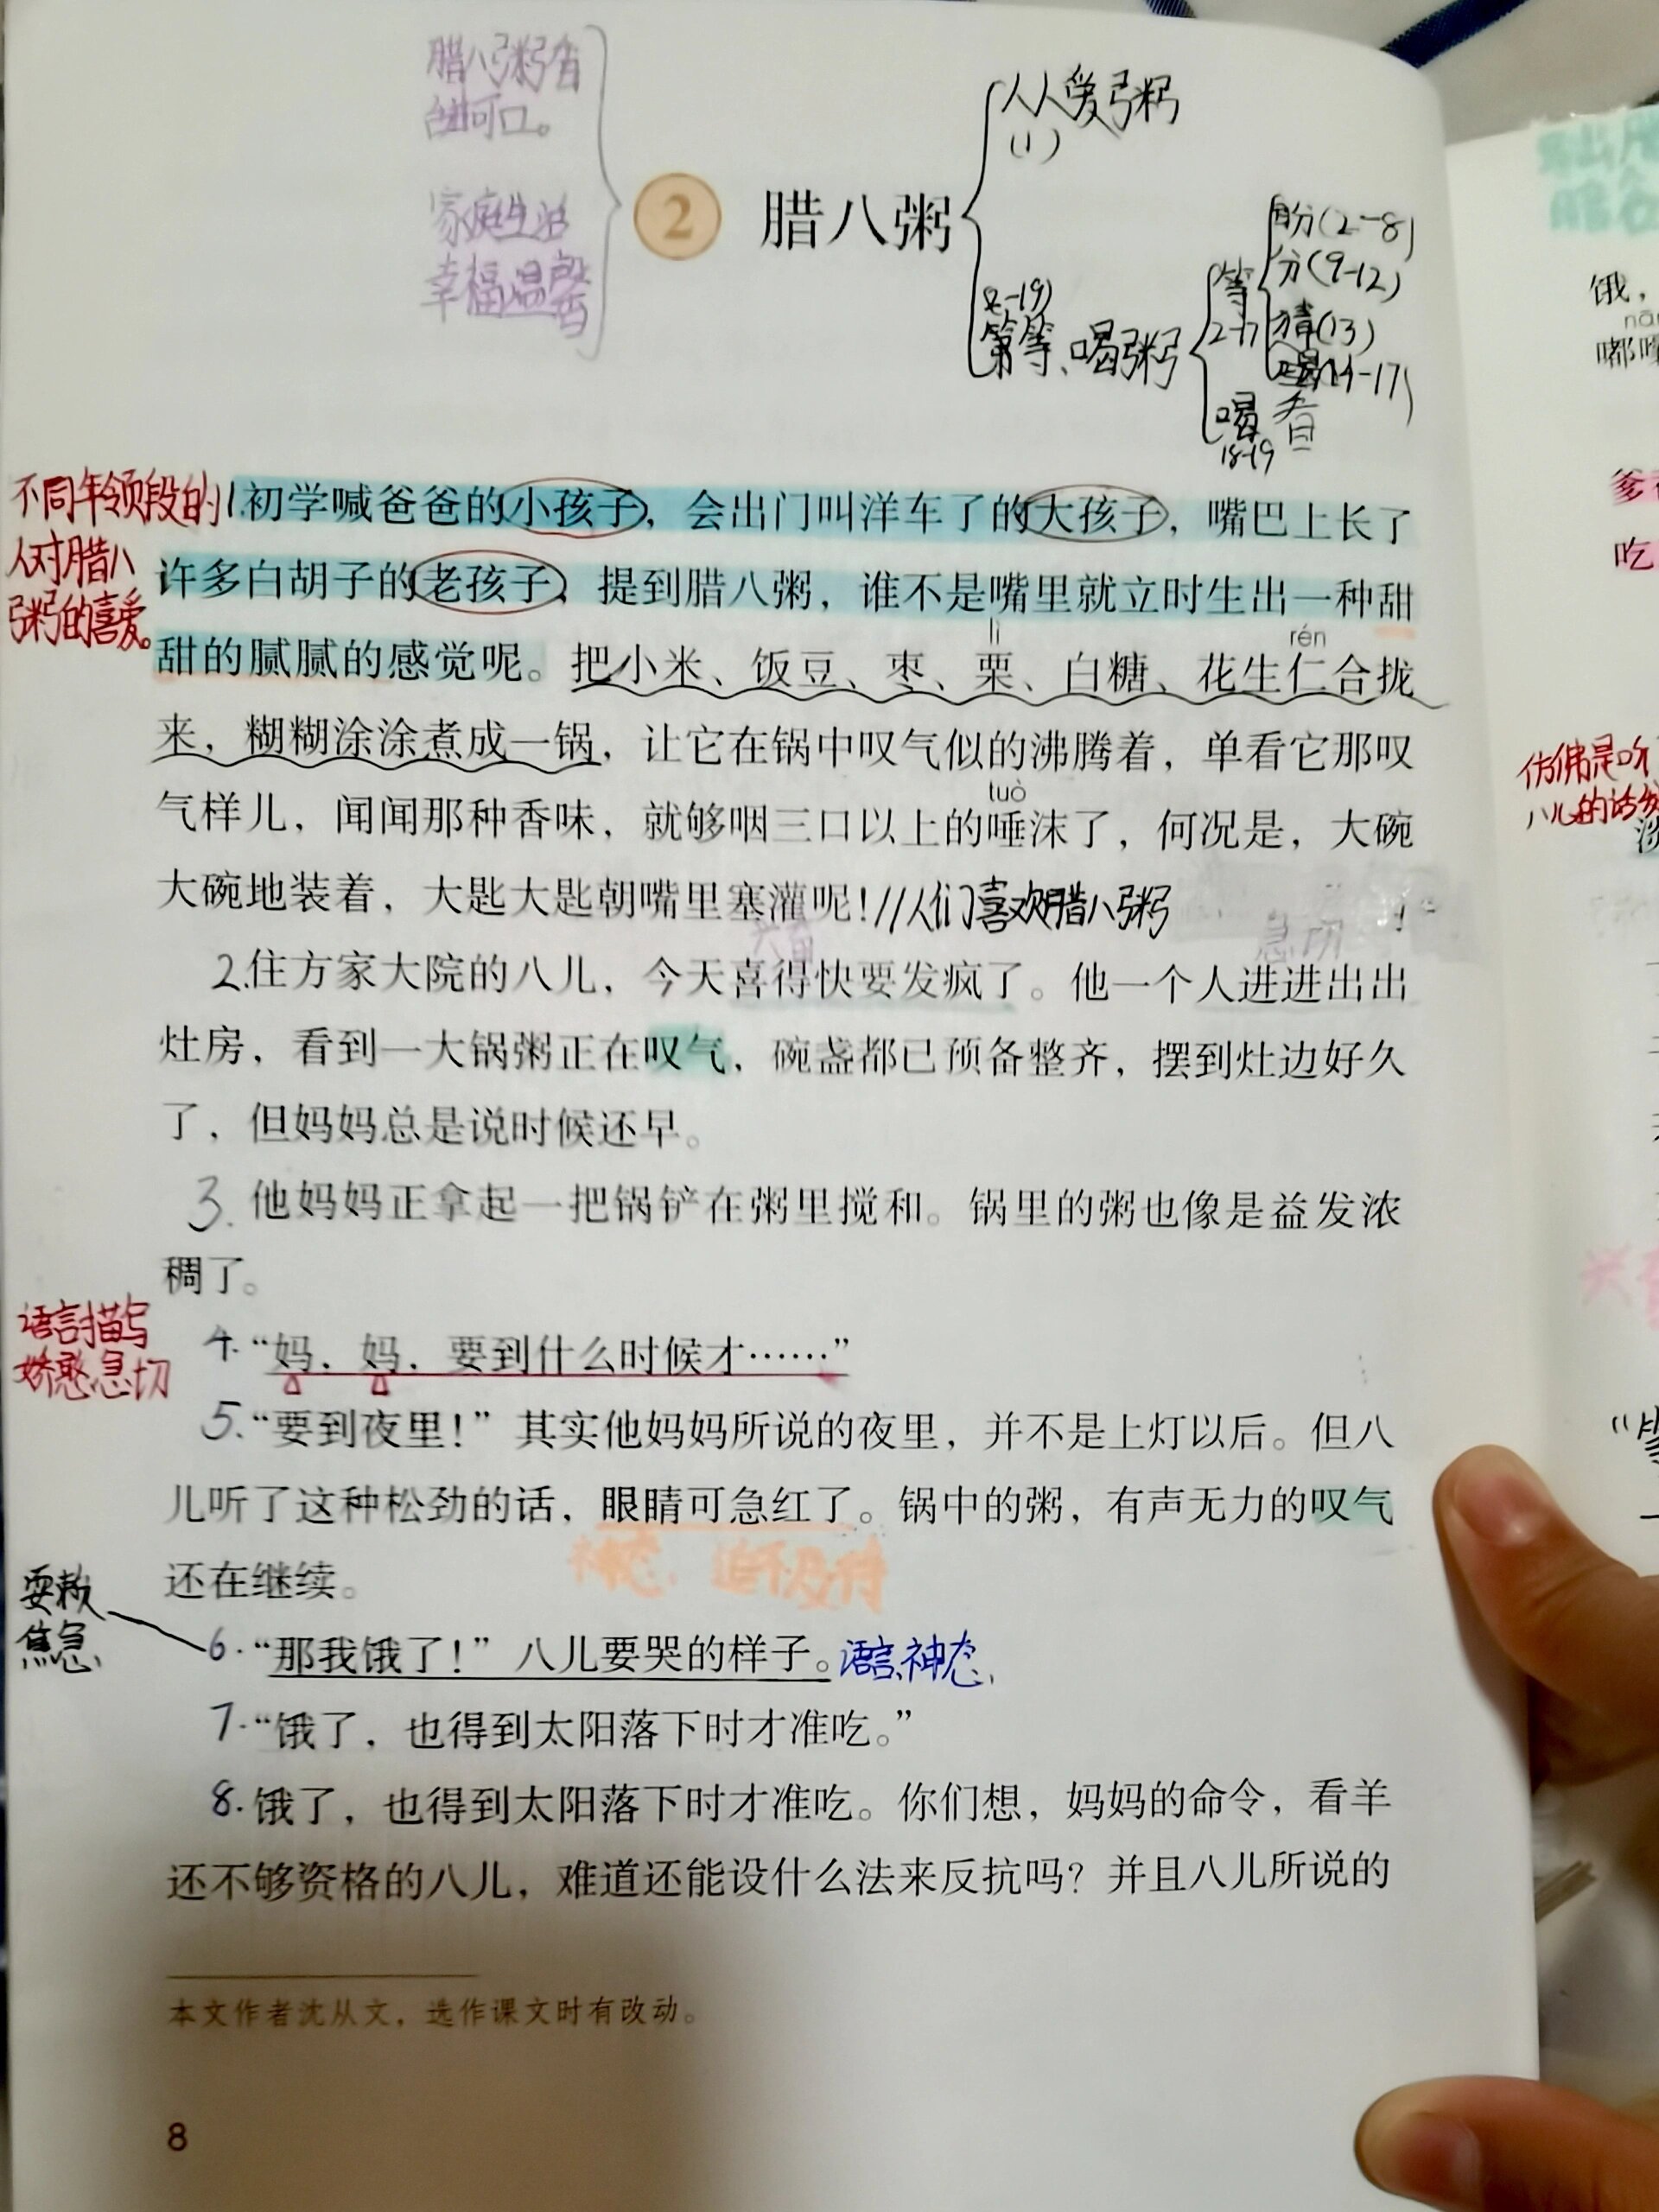 腊八粥香
甜可口。
家庭生活
幸福温馨
② 腊八粥
人人爱粥
(1)
(2-19)
等、喝粥
等
2-17
盼(2-8)
分(9-12)
猜(13)
看(14-17)
喝
18-19
不同年领段的
人对腊八
粥的喜爱。
1.初学喊爸爸的小孩子，会出门叫洋车了的大孩子，嘴巴上长了
许多白胡子的老孩子，提到腊八粥，谁不是嘴里就立时生出一种甜
lì rén
甜的腻腻的感觉呢。把小米、饭豆、枣、栗、白糖、花生仁合拢
来，糊糊涂涂煮成一锅，让它在锅中叹气似的沸腾着，单看它那叹
tuò
气样儿，闻闻那种香味，就够咽三口以上的唾沫了，何况是，大碗
大碗地装着，大匙大匙朝嘴里塞灌呢！//人们喜欢腊八粥
兴奋 急切
2.住方家大院的八儿，今天喜得快要发疯了。他一个人进进出出
灶房，看到一大锅粥正在叹气，碗盏都已预备整齐，摆到灶边好久
了，但妈妈总是说时候还早。
3.他妈妈正拿起一把锅铲在粥里搅和。锅里的粥也像是益发浓
稠了。
语言描写
娇憨急切
4.“妈，妈，要到什么时候才……”
5.“要到夜里！”其实他妈妈所说的夜里，并不是上灯以后。但八
儿听了这种松劲的话，眼睛可急红了。锅中的粥，有声无力的叹气
还在继续。
神态、迫不及待
耍赖
焦急
6.“那我饿了！”八儿要哭的样子。语言、神态
7.“饿了，也得到太阳落下时才准吃。”
8.饿了，也得到太阳落下时才准吃。你们想，妈妈的命令，看羊
还不够资格的八儿，难道还能设什么法来反抗吗？并且八儿所说的
本文作者沈从文，选作课文时有改动。
8
饿，
嘟
吃
仿佛是听
八儿的话